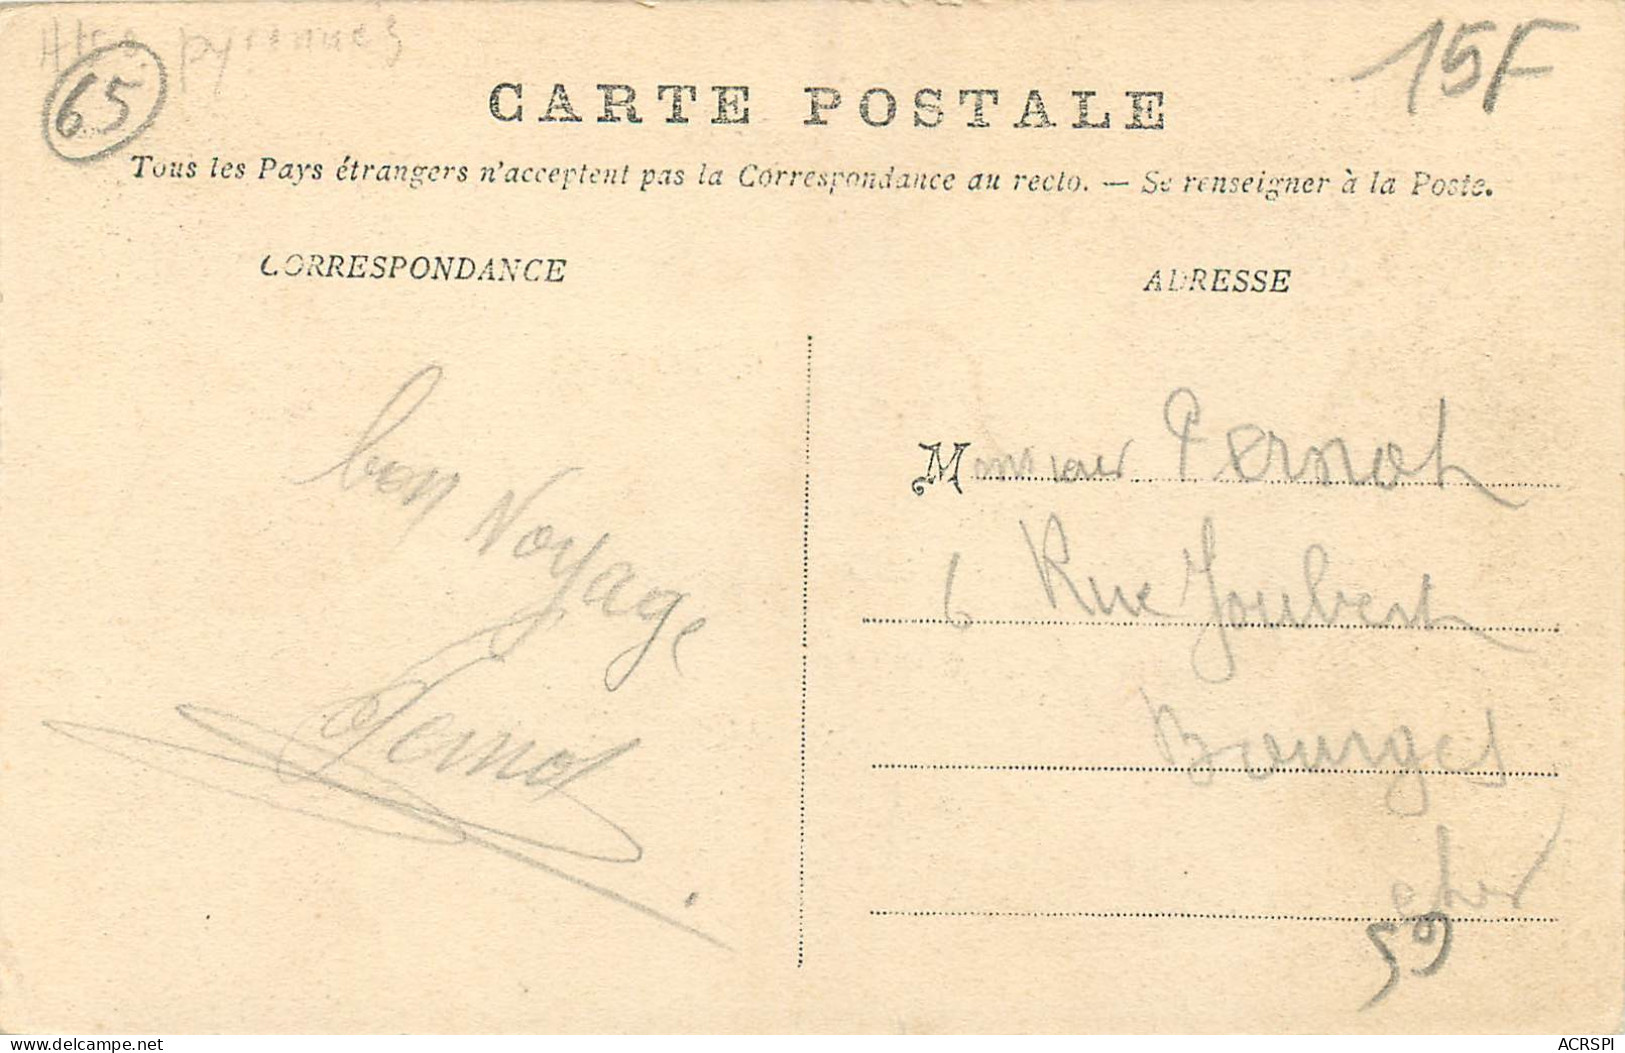 Htes pyrennées
65
15F
CARTE POSTALE
Tous les Pays étrangers n'acceptent pas la Correspondance au recto. — Se renseigner à la Poste.
CORRESPONDANCE
ADRESSE
bon Voyage
Pernot
Monsieur Pernot
6 Rue Joubert
Bourges
cher
59
www.delcampe.net
ACRSPI